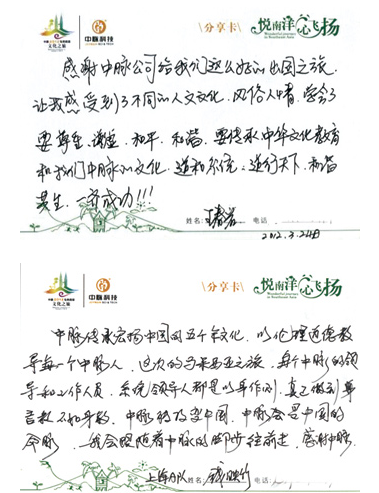 文化之旅
中脉科技
\分享卡/
悦南洋 心飞扬
感谢中脉公司给我们这么好的出国之旅.
让我感受到了不同的人文文化,风俗人情,学会了
要尊重,谦虚,和平,和谐,要传承中华文化教育
和我们中脉的文化,道和系统,道行天下,和谐
共生,一齐成功!!!
姓名: 电话:
2012.3.24日
文化之旅
中脉科技
\分享卡/
悦南洋 心飞扬
中脉传承宏扬中国的五千年文化,以伦理道德教
导每一个中脉人,这次的马来西亚之旅,每个中脉的领
导和工作人员,系统领导人都是以身作则,真正做到单
言教不如身教,中脉转改变中国,中脉会是中国的
命脉,我会跟随着中脉的脚步往前走,感谢中脉.
上海分队 姓名: 电话: